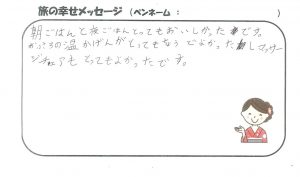 旅の幸せメッセージ (ペンネーム : )
朝ごはんと夜ごはんとってもおいしかったです。
の温かげんがとってもちょうどよかったしマッサー
ジチェアもとってもよかったです。